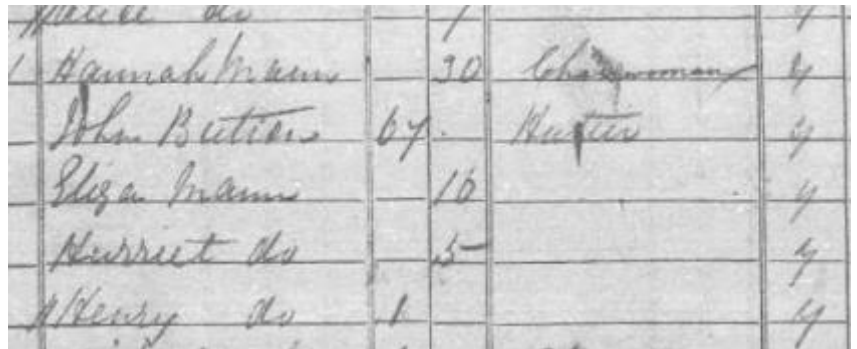 Alice do 7 y
1 Hannah Mann 30 Charwoman y
John Button 67 y
Eliza Mann 10 y
Harriet do 5 y
Henry do 1 y